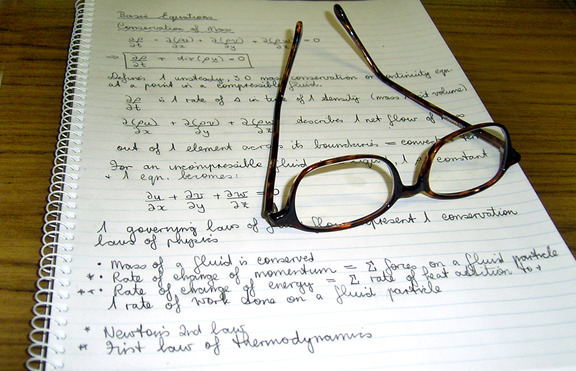 Basic Equations
Conservation of Mass
∂ρ/∂t + ∂(ρu)/∂x + ∂(ρv)/∂y + ∂(ρw)/∂z = 0
⇒ ∂ρ/∂t + div(ρu) = 0
Defines 1 unsteady, 3D mass conservation or continuity eqn.
at a point in a compressible fluid.
∂ρ/∂t is 1 rate of Δ in 1 density (mass volume)
∂(ρu)/∂x + ∂(ρv)/∂y + ∂(ρw)/∂z describes 1 net flow of
out of 1 element across its boundaries =
For an incompressible fluid constant
+ 1 eqn. becomes:
∂u/∂x + ∂v/∂y + ∂w/∂z = 0
1 governing laws of flow represent 1 conservation
laws of physics
• Mass of a fluid is conserved
*• Rate of change of momentum = Σ forces on a fluid particle
**• Rate of change of energy = Σ rate of heat addition to +
1 rate of work done on a fluid particle
* Newton's 2nd law
** First law of thermodynamics